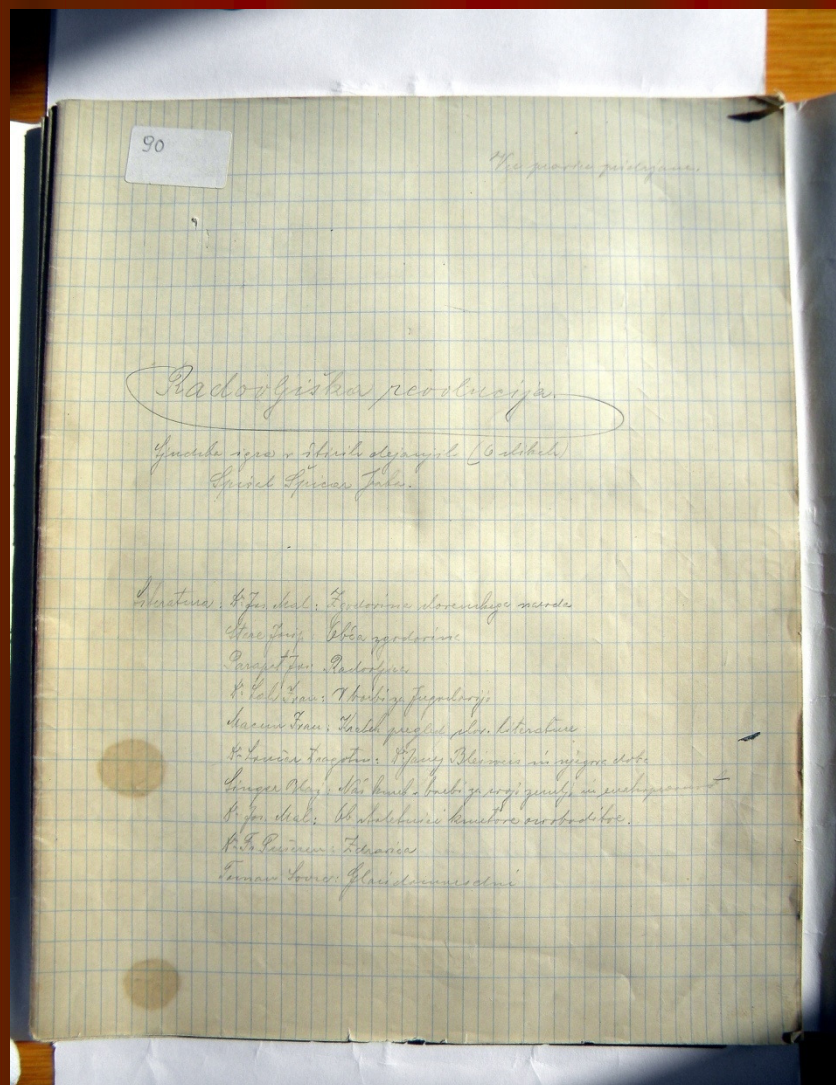 90
Vse pravice pridržane.
Radovljiška revolucija.
Ljudska igra v štirih dejanjih (6 slikah)
Spisal Špicar Jaka.
Literatura: Dr. Jos. Mal: Zgodovina slovenskega naroda
Stare Josip: Obča zgodovina
Jos: Radovljica
Dr. Fran: V borbi za Jugoslavijo
Fran: Kratek pregled slov. literature
Dr. Lončar Dragotin: Dr. Janez Bleiweis in njegova doba
Naš kmet v borbi za svojo zemljo in
Dr. Jos. Mal: Ob stoletnici kmetove osvoboditve.
Dr. Fr. Prešeren: Zdravica
Toman Lovro: Glasi domorodni